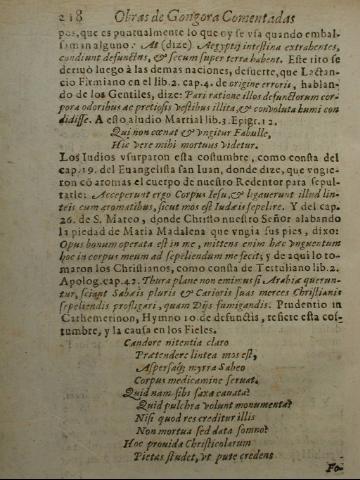 218 Obras de Gongora Comentadas
pos, que es puntualmente lo que oy se vía quando embal-
saman alguno: At (dize) Aegyptij intestina extrahentes,
condiunt defunctus, & secum super terra habent. Este rito se
deriuò luego à las demas naciones, desuerte, que Lactan-
cio Firmiano en el lib. 2. cap. 4. de origine erroris, hablan-
do de los Gentiles, dize: Pari ratione illos defunctorum cor-
pora odoribus ac pretiosis vestibus illita, & conuoluta humi con
didisse. A esto aludio Martial lib. 3. Epigr. 12.
Qui non cœnat & vngitur Fabulle,
Hic vere mihi mortuus videtur.
Los Iudios vsurparon esta costumbre, como consta del
cap. 19. del Euangelista san Iuan, donde dize, que vngie-
ron cõ aromas el cuerpo de nuestro Redentor para sepul-
tarle: Acceperunt ergo Corpus Iesu, & ligauerunt illud lin-
teis cum aromatibus, sicut mos est Iudæis sepelire. Y del cap.
26. de S. Mateo, donde Christo nuestro Señor alabando
la piedad de Maria Madalena que vngia sus pies, dixo:
Opus bonum operata est in me, mittens enim hæc vnguentum
hoc in corpus meum ad sepeliendum me fecit; y de aqui lo to-
maron los Christianos, como consta de Tertuliano lib. 2.
Apolog. cap. 42. Thura plane non emimus si Arabiæ querun-
tur, sciant Sabæis pluris & Carioris suas merces Christianis
sepeliendis profligari, quam Dijs fumigandis. Prudentio in
Cathemerinon, Hymno 10. de defunctis, refiere esta cos-
tumbre, y la causa en los Fieles.
Candore nitentia claro
Prætendere lintea mos est,
Aspersaq; myrra Sabeo
Corpus medicamine seruat.
Quid nam sibi saxa cauata?
Quid pulchra volunt monumenta?
Nisi quod res creditur illis
Non mortua sed data somno?
Hoc prouida Christicolarum
Pietas studet, vt pute credens
Fo-